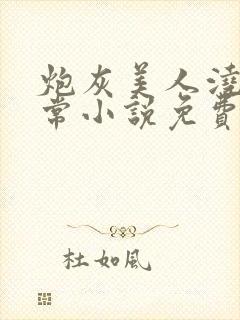 炮灰美人澆
常小說免費
杜如風